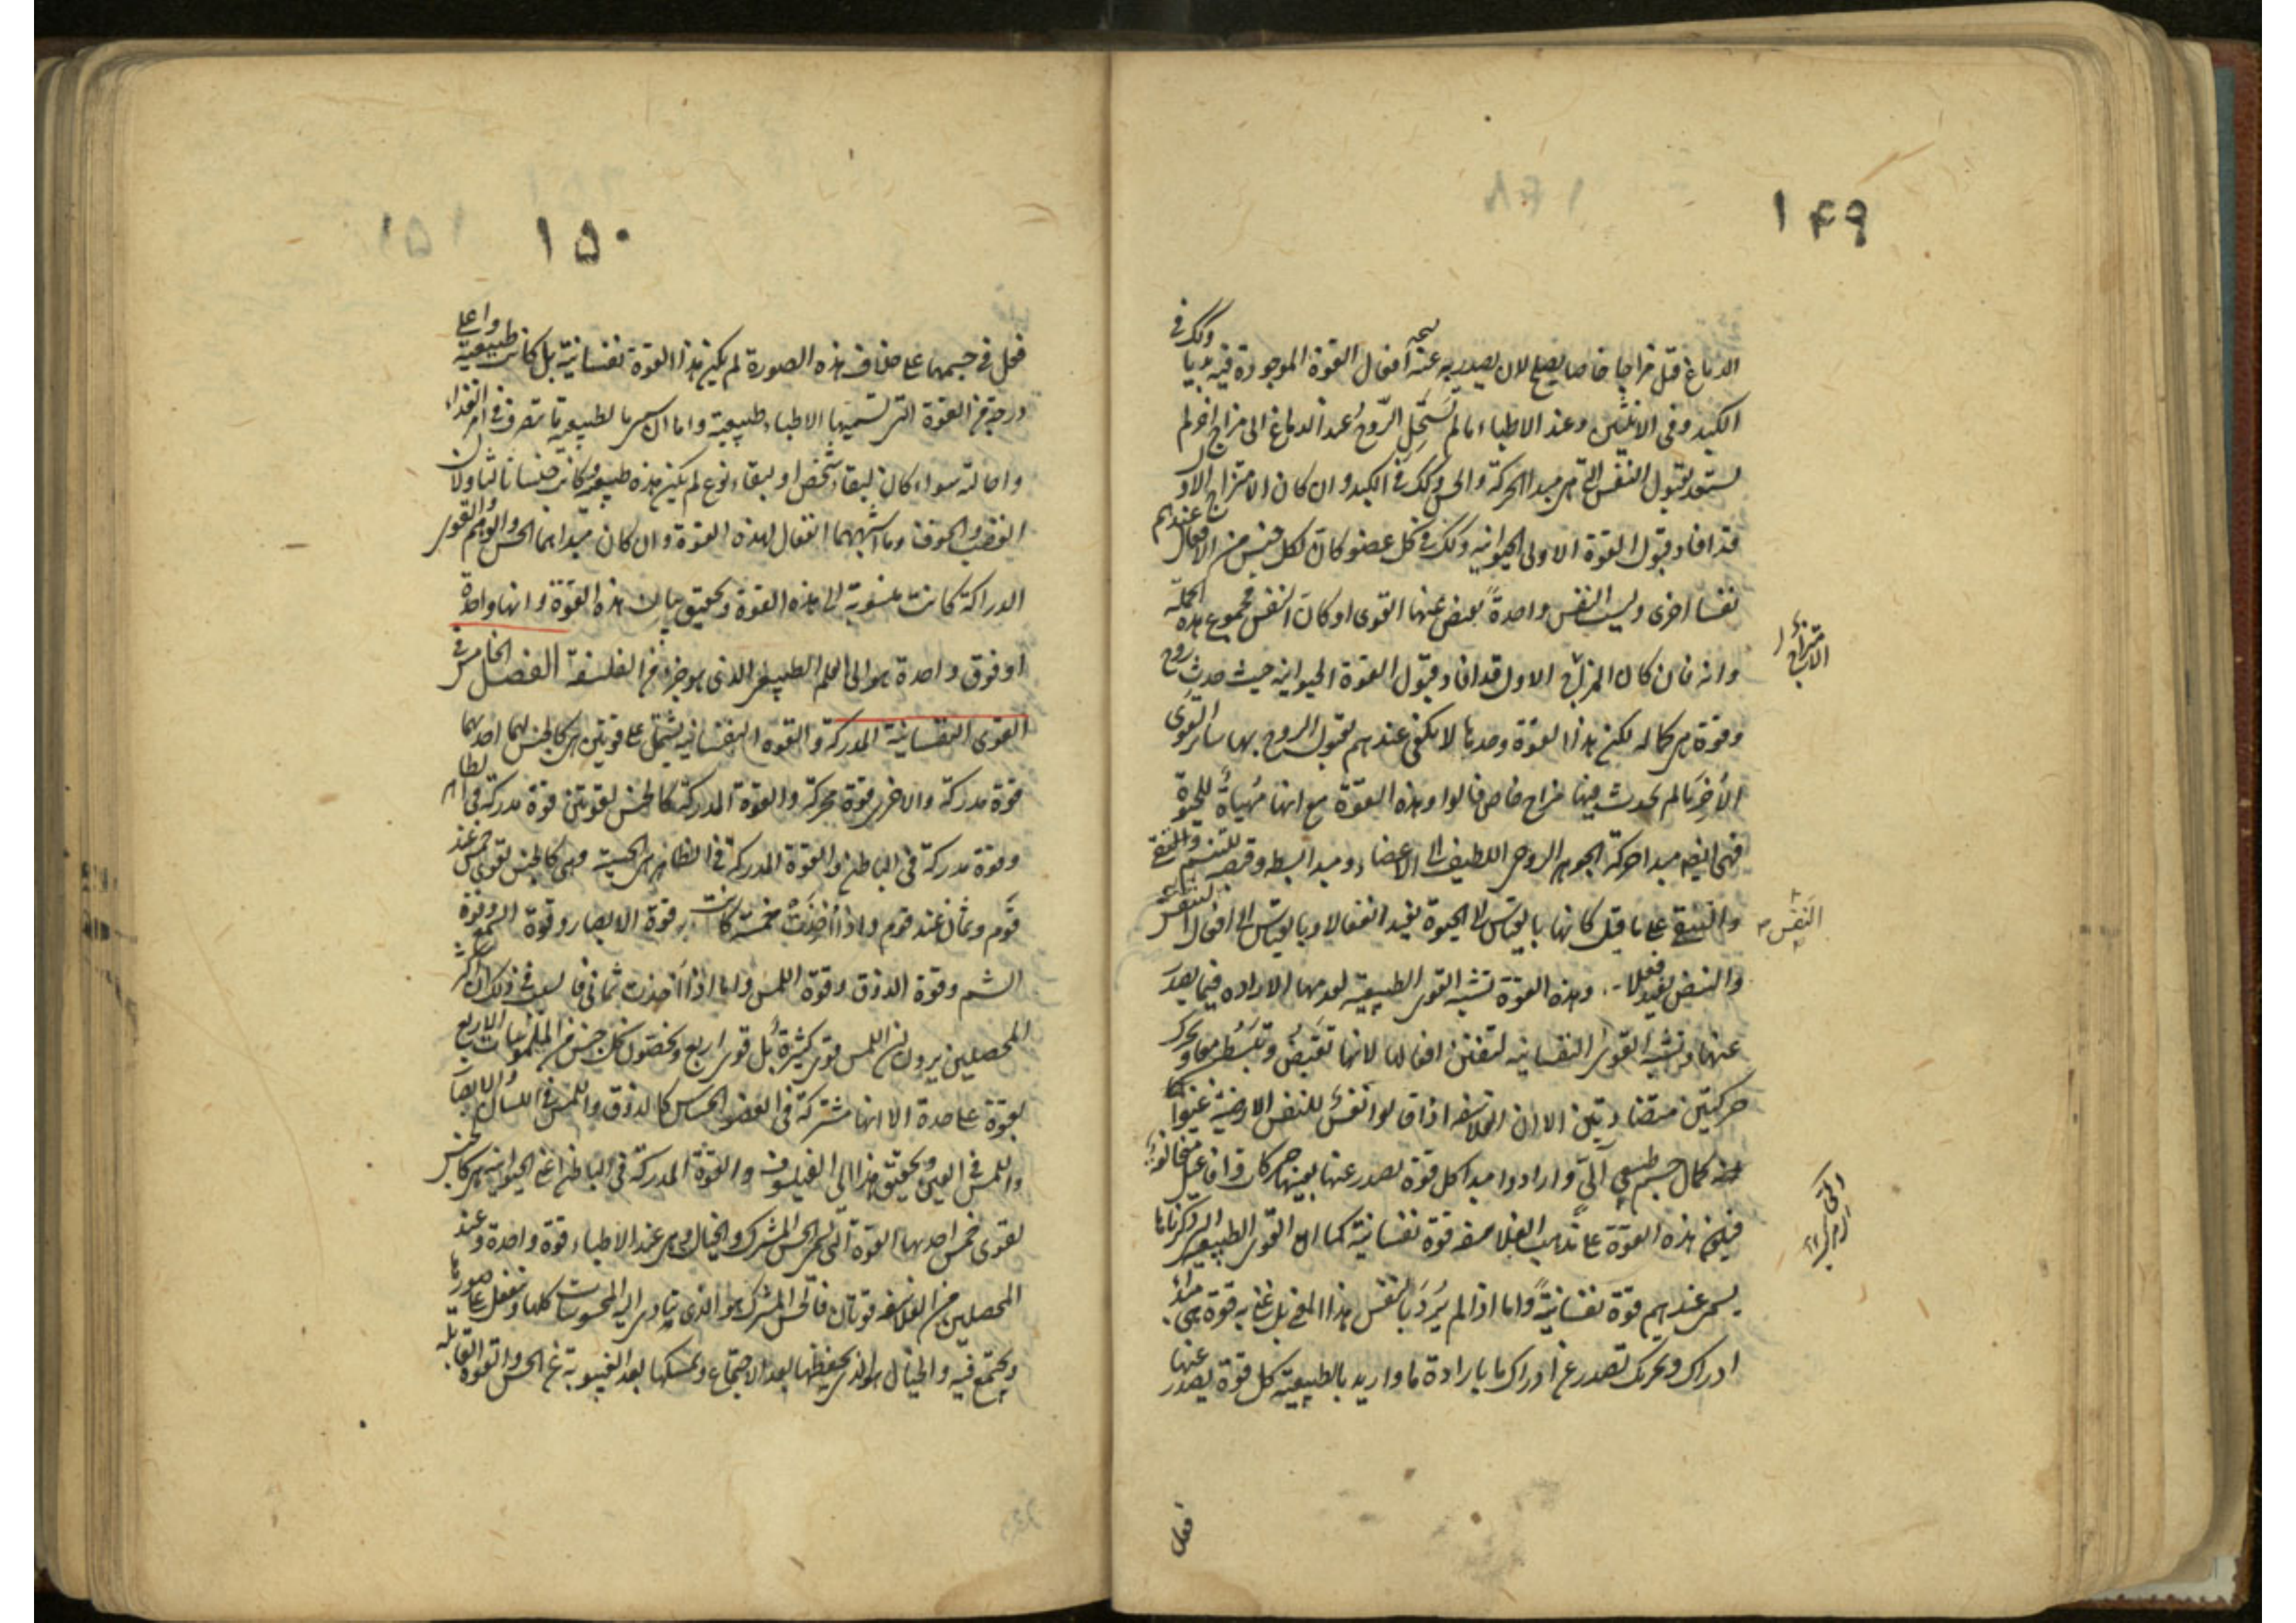 ١٤٩
الدماغ قبل مزاجا خاصا يصلح لان يصدر به عنه افعال القوة الموجودة فيه بديا وكذلك في
الكبد وفي الانثيين وعند الاطباء ما لم تستحل الروح عند الدماغ الى مزاج اخر لم
تستعد لقبول النفس التي هي مبدا الحركة والحس وكذلك في الكبد وان كان الامتزاج الاول
قد افاد قبول القوة الاولى الحيوانية وكذلك في كل عضو كان لكل جنس من الافعال عندهم
نفسا اخرى وليست النفس واحدة يفيض عنها القوى او كان النفس مجموع هذه الجملة
وانه فان كان المزاج الاول قد افاد قبول القوة الحيوانية حيث حدث روح
وقوة هي كماله لكن هذه القوة وحدها لا يكفي عندهم لقبول الروح بها سائر القوى
الأخر ما لم يحدث فيها مزاج خاص قالوا وهذه القوة مع انها مهياة للحيوة
فهي ايضا مبدا حركة الجوهر الروحي اللطيف الى الاعضاء ومبدا بسطه وقبضه للتنسم والتنقي
والتنقي على ما قيل كانها بالقياس الى الحيوة يفيد انفعالا وبالقياس الى افعال النفس
والنبض يفيد فعلا وهذه القوة تشبه القوى الطبيعية لعدمها الارادة فيما يصدر
عنها وتشبه القوى النفسانية لتفنن افعالها لانها تقبض وتبسط معا وتحرك
حركتين متضادتين الا ان الفلاسفة اذا قالوا نفس للنفس الارضية عنوا
كمال جسم طبيعي آلي وارادوا مبدا كل قوة تصدر عنها بعينها حركات وافاعيل متخالفة
فيكون هذه القوة على مذهب الفلاسفة قوة نفسانية كما ان القوى الطبيعية التي ذكرناها
يسمى عندهم قوة نفسانية واما اذا لم يرد بالنفس هذا المعنى بل عنى به قوة هي مبدأ
ادراك وتحريك تصدر عن ادراك ما بارادة ما واريد بالطبيعية كل قوة يصدر عنها
الامتزاج
النفس
فعل
١٥٠
فعل في جسمها على خلاف هذه الصورة لم يكن هذه القوة نفسانية بل كانت طبيعية واعلى
درجة من القوة التي تسميها الاطباء طبيعية واما ان سمي بالطبيعية ما تتصرف في امر الغذاء
واحالته سواء كان لبقاء شخص او لبقاء نوع لم يكن هذه طبيعية وكانت جنسا ثالثا ولان
الغضب والخوف وما اشبههما انفعال لهذه القوة وان كان مبداهما الحس والوهم والقوى
الدراكة كانت منسوبة الى هذه القوة وتحقيق بيان هذه القوة وانها واحدة
او فوق واحدة هو الى العلم الطبيعي الذي هو جزء من الفلسفة الفصل الخامس في
القوى النفسانية المدركة والقوة النفسانية تشتمل على قوتين هي كالجنس لهما احدهما
قوة مدركة والاخرى قوة محركة والقوة المدركة كالجنس لقوتين قوة مدركة في الظاهر
وقوة مدركة في الباطن والقوة المدركة في الظاهر هي الحسية وهي كالجنس لقوى خمس عند
قوم وثمان عند قوم واذا أخذت خمسة كانت قوة الابصار وقوة السمع وقوة
الشم وقوة الذوق وقوة اللمس واما اذا أخذت ثماني فالسبب في ذلك ان اكثر
المحصلين يرون ان اللمس قوى كثيرة بل قوى اربع ويخصون كل جنس من الملموسات الاربع
بقوة على حدة الا انها مشتركة في العضو الحساس كالذوق واللمس في اللسان والابصار
واللمس في العين وتحقيق هذا الى الفيلسوف والقوة المدركة في الباطن اعني الحيوانية هي كالجنس
لقوى خمس احدها القوة التي تسمى الحس المشترك والخيال وهي عند الاطباء قوة واحدة وعند
المحصلين من الفلاسفة قوتان فالحس المشترك هو الذي يتادى اليه المحسوسات كلها وينفعل عن صورها
ويجتمع فيه والخيال هو الذي يحفظها بعد الاجتماع ويمسكها بعد الغيبوبة عن الحس والقوة القابلة